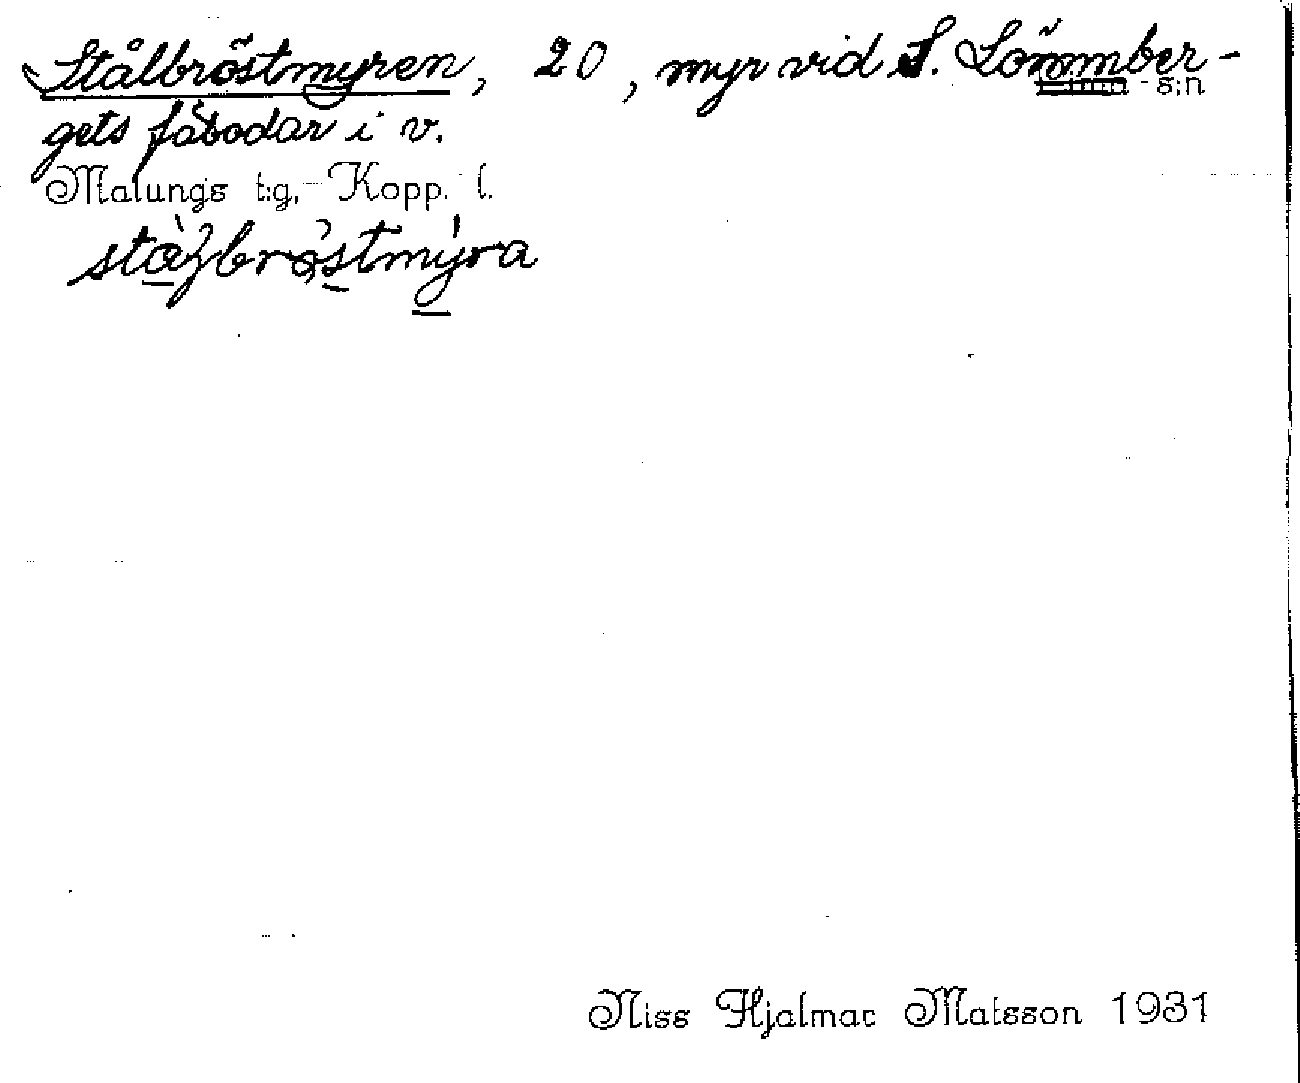 Stålbröstmyren, 20, myr vid S. Lömmber-
Lima s:n
gets fäbodar i v.
Malungs t:g, Kopp. l.
Niss Hjalmar Matsson 1931